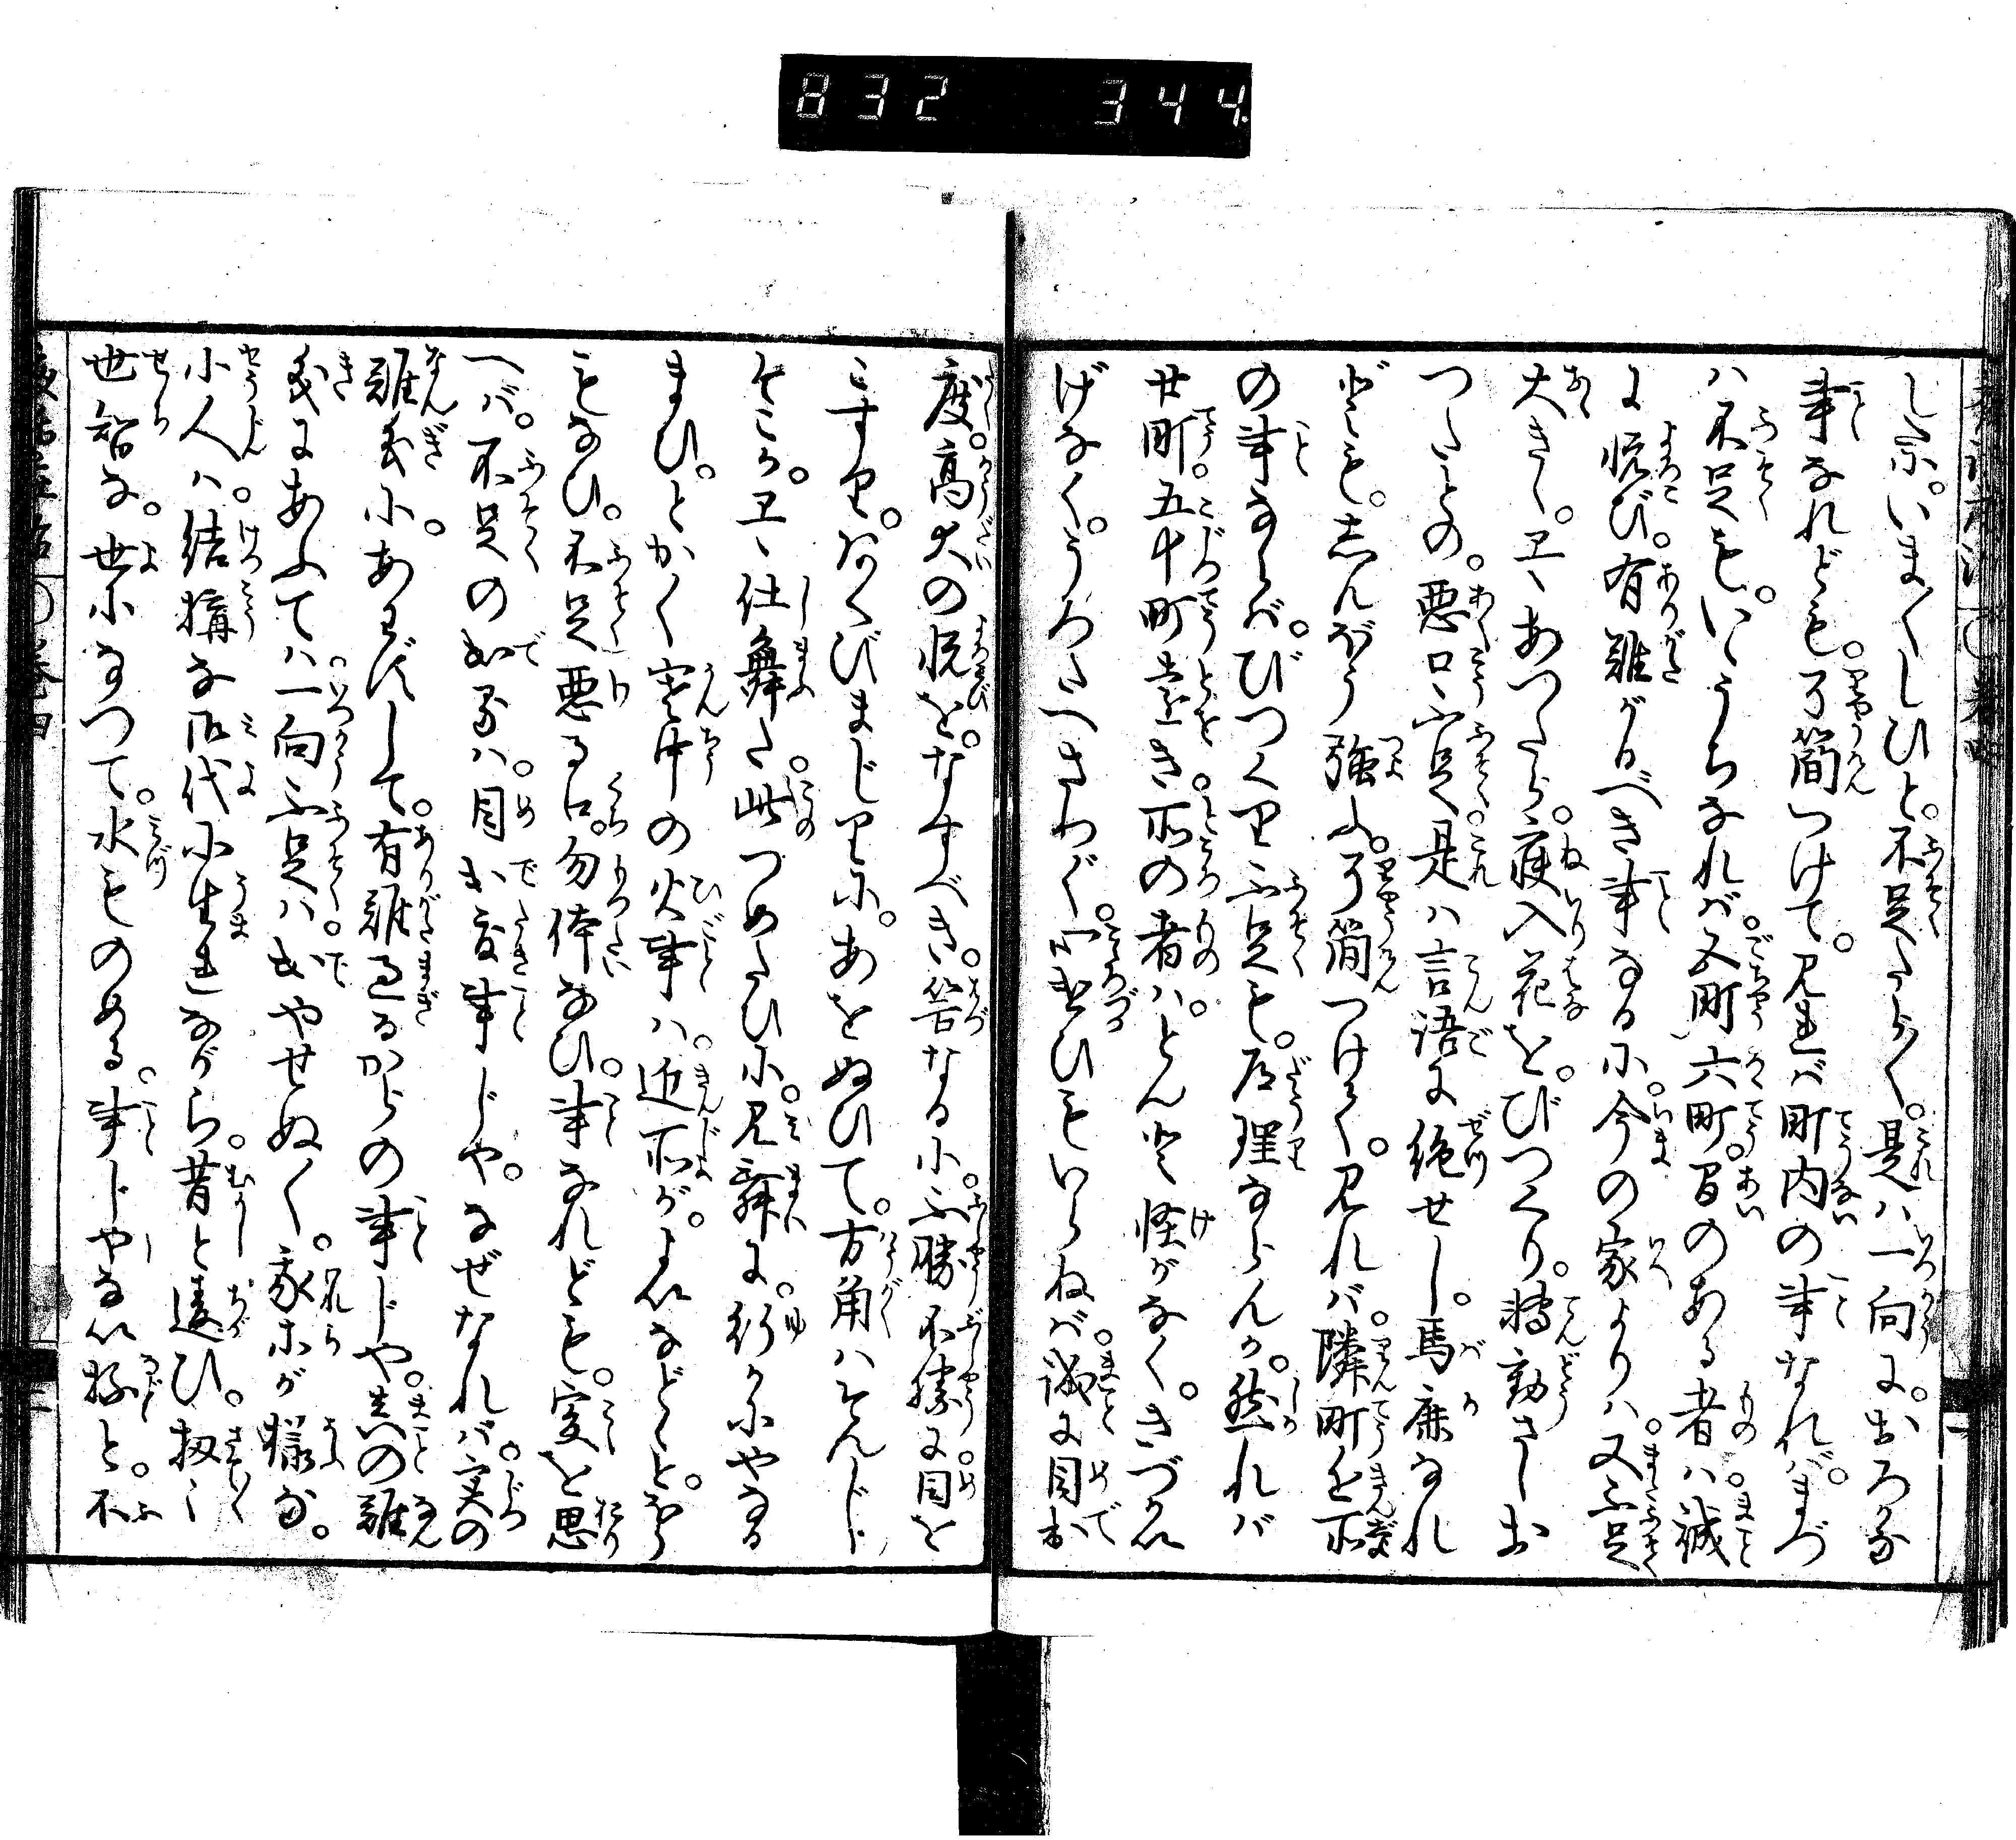 832 344.
した。いま〳〵しひと。不足たら〳〵。是ハ一向に。おろかな
事なれども。了簡つけて。見れバ町内の事なれバ。まづ
ハ不足も。いふうちなれバ。五町六町。間のある者ハ。誠
に悦び。有難がるべき事なるに。今の家よりハ。又不足
大きく。ヱヽあつたら。寝入花を。びつくり。轉動さしお
つたとの。悪口不足。是ハ言語に絶せし。馬鹿なれ
ども。しんばう強ふ。了簡つけて。見れバ。隣町近所
の事ならバ。びつくり不足も。道理ならんか。然れバ
廿町。五十町遠き所の者ハ。とんと怪がなく。きづかい
げなく。うろたへさわぐ。心づかひもいらねバ。誠に目出
度。高大の悦を。なすべき。筈なるに。不勝不勝に目を
こすり。あくびまじりに。あをぬひて。方角ハそんじ
そこら。ヱヽ仕舞た。此つめたひに。見舞に。行かにやなる
まひ。とかく寒中の火事ハ。近所が。よいなどゝ。とら
もなひ。不足悪る口。勿体なひ。事なれども。爰を思
へバ。不足の出るハ。目出度事じや。なぜなれバ。実の
難義に。あわずして。有難過るからの事じや。真の難
義にあふてハ。一向不足ハ。出やせぬ〳〵。我等が様な。
小人ハ。結構な御代に生れながら。昔と違ひ。扨〳〵
世智な。世になつて。水ものめる。事じやない抔と。不